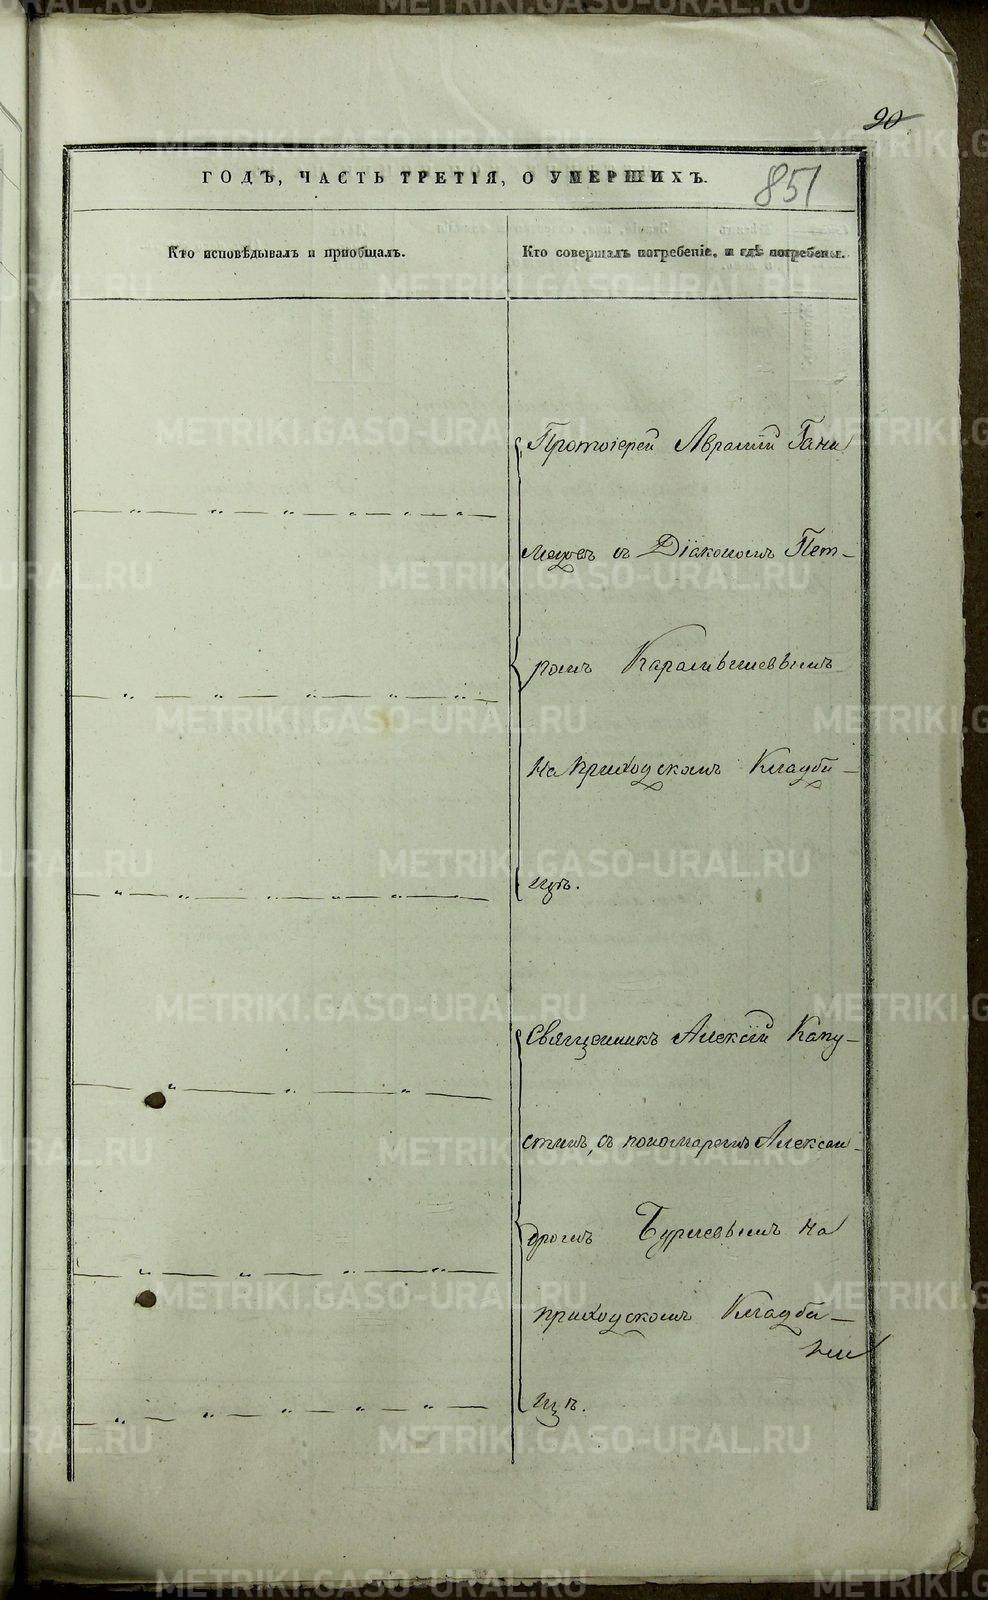 90
ГОДЪ, ЧАСТЬ ТРЕТІЯ, О УМЕРШИХЪ.
851
Кто исповѣдывалъ и пріобщалъ.
Кто совершалъ погребеніе, и гдѣ погребены.
Протоіерей Аврамій Гани
медовъ съ Діакономъ Пет-
ромъ Карамышевымъ
На приходскомъ Кладби-
щѣ.
Священникъ Алексій Капу-
стинъ, съ пономаремъ Алексан-
дромъ Бурчевымъ на
приходскомъ Кладби-
щѣ.
METRIKI.GASO-URAL.RU